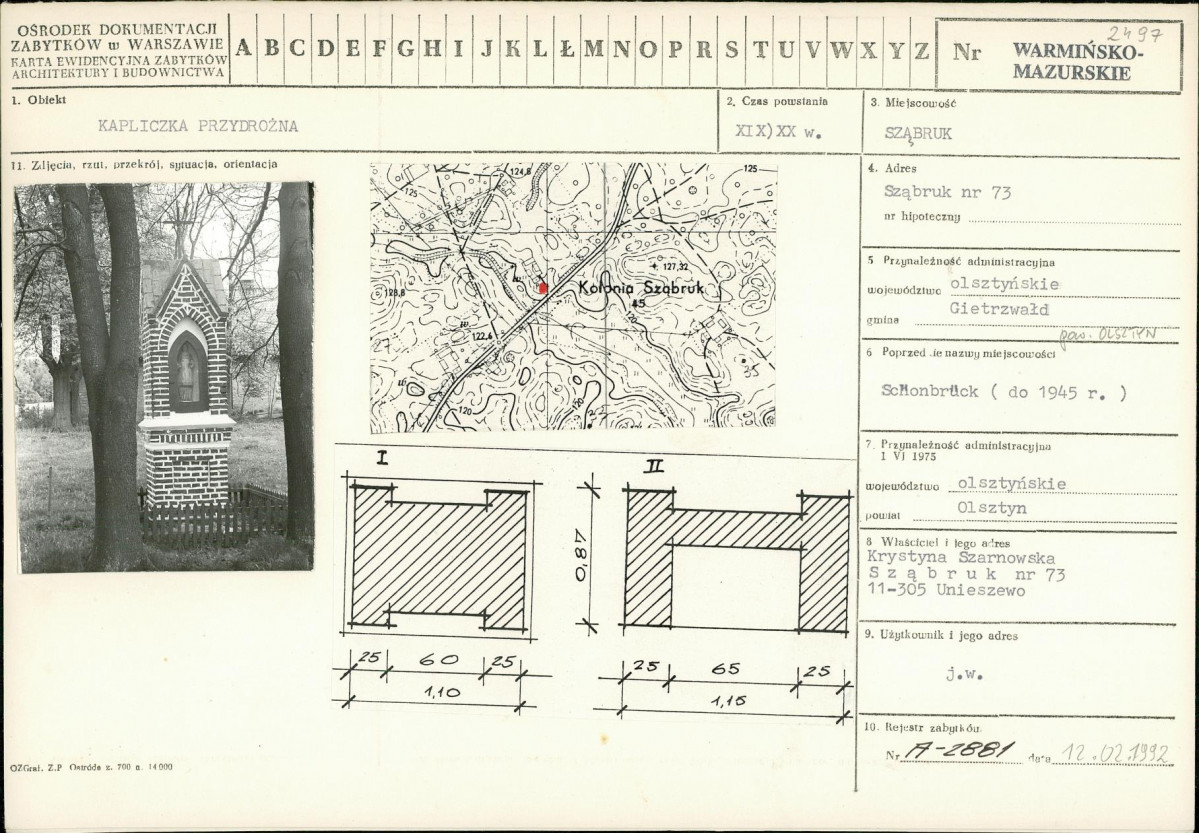 OŚRODEK DOKUMENTACJI
ZABYTKÓW w WARSZAWIE
KARTA EWIDENCYJNA ZABYTKÓW
ARCHITEKTURY I BUDOWNICTWA
A B C D E F G H I J K L Ł M N O P R S T U V W X Y Z
Nr
2497
WARMIŃSKO-
MAZURSKIE
1. Obiekt
KAPLICZKA PRZYDROŻNA
2. Czas powstania
XIX)XX w.
3. Miejscowość
SZĄBRUK
4. Adres
Sząbruk nr 73
nr hipoteczny
5 Przynależność administracyjna
województwo olsztyńskie
gmina Gietrzwałd
pow. OLSZTYN
6 Poprzednie nazwy miejscowości
Schonbrück ( do 1945 r. )
7. Przynależność administracyjna
1 VI 1975
województwo olsztyńskie
powiat Olsztyn
8 Właściciel i jego adres
Krystyna Szarnowska
S z ą b r u k nr 73
11-305 Unieszewo
9. Użytkownik i jego adres
j.w.
10. Rejestr zabytków
Nr A-2881 data 12.02.1992
11. Zdjęcia, rzut, przekrój, sytuacja, orientacja
124,8
125
125
127,32
128,8
Kolonia Sząbruk
45
120
122,6
27
35
120
120
I
II
0,87
25 60 25
1,10
25 65 25
1,15
OZGraf. Z.P. Ostróda z. 700 n. 14 000